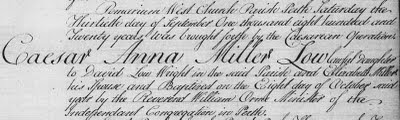 Pomarium West Church Parish Perth Saturday the
Thirtieth day of September One thousand eight hundred and
Twenty years, was brought forth by the Caesarean Operation.
Caesar Anna Miller Low lawful Daughter
to David Low Wright in the said Parish and Elizabeth Miller
his Spouse and Baptized on the Eight day of October said
year by the Reverend William Orme Minister of the
Independent Congregation in Perth.